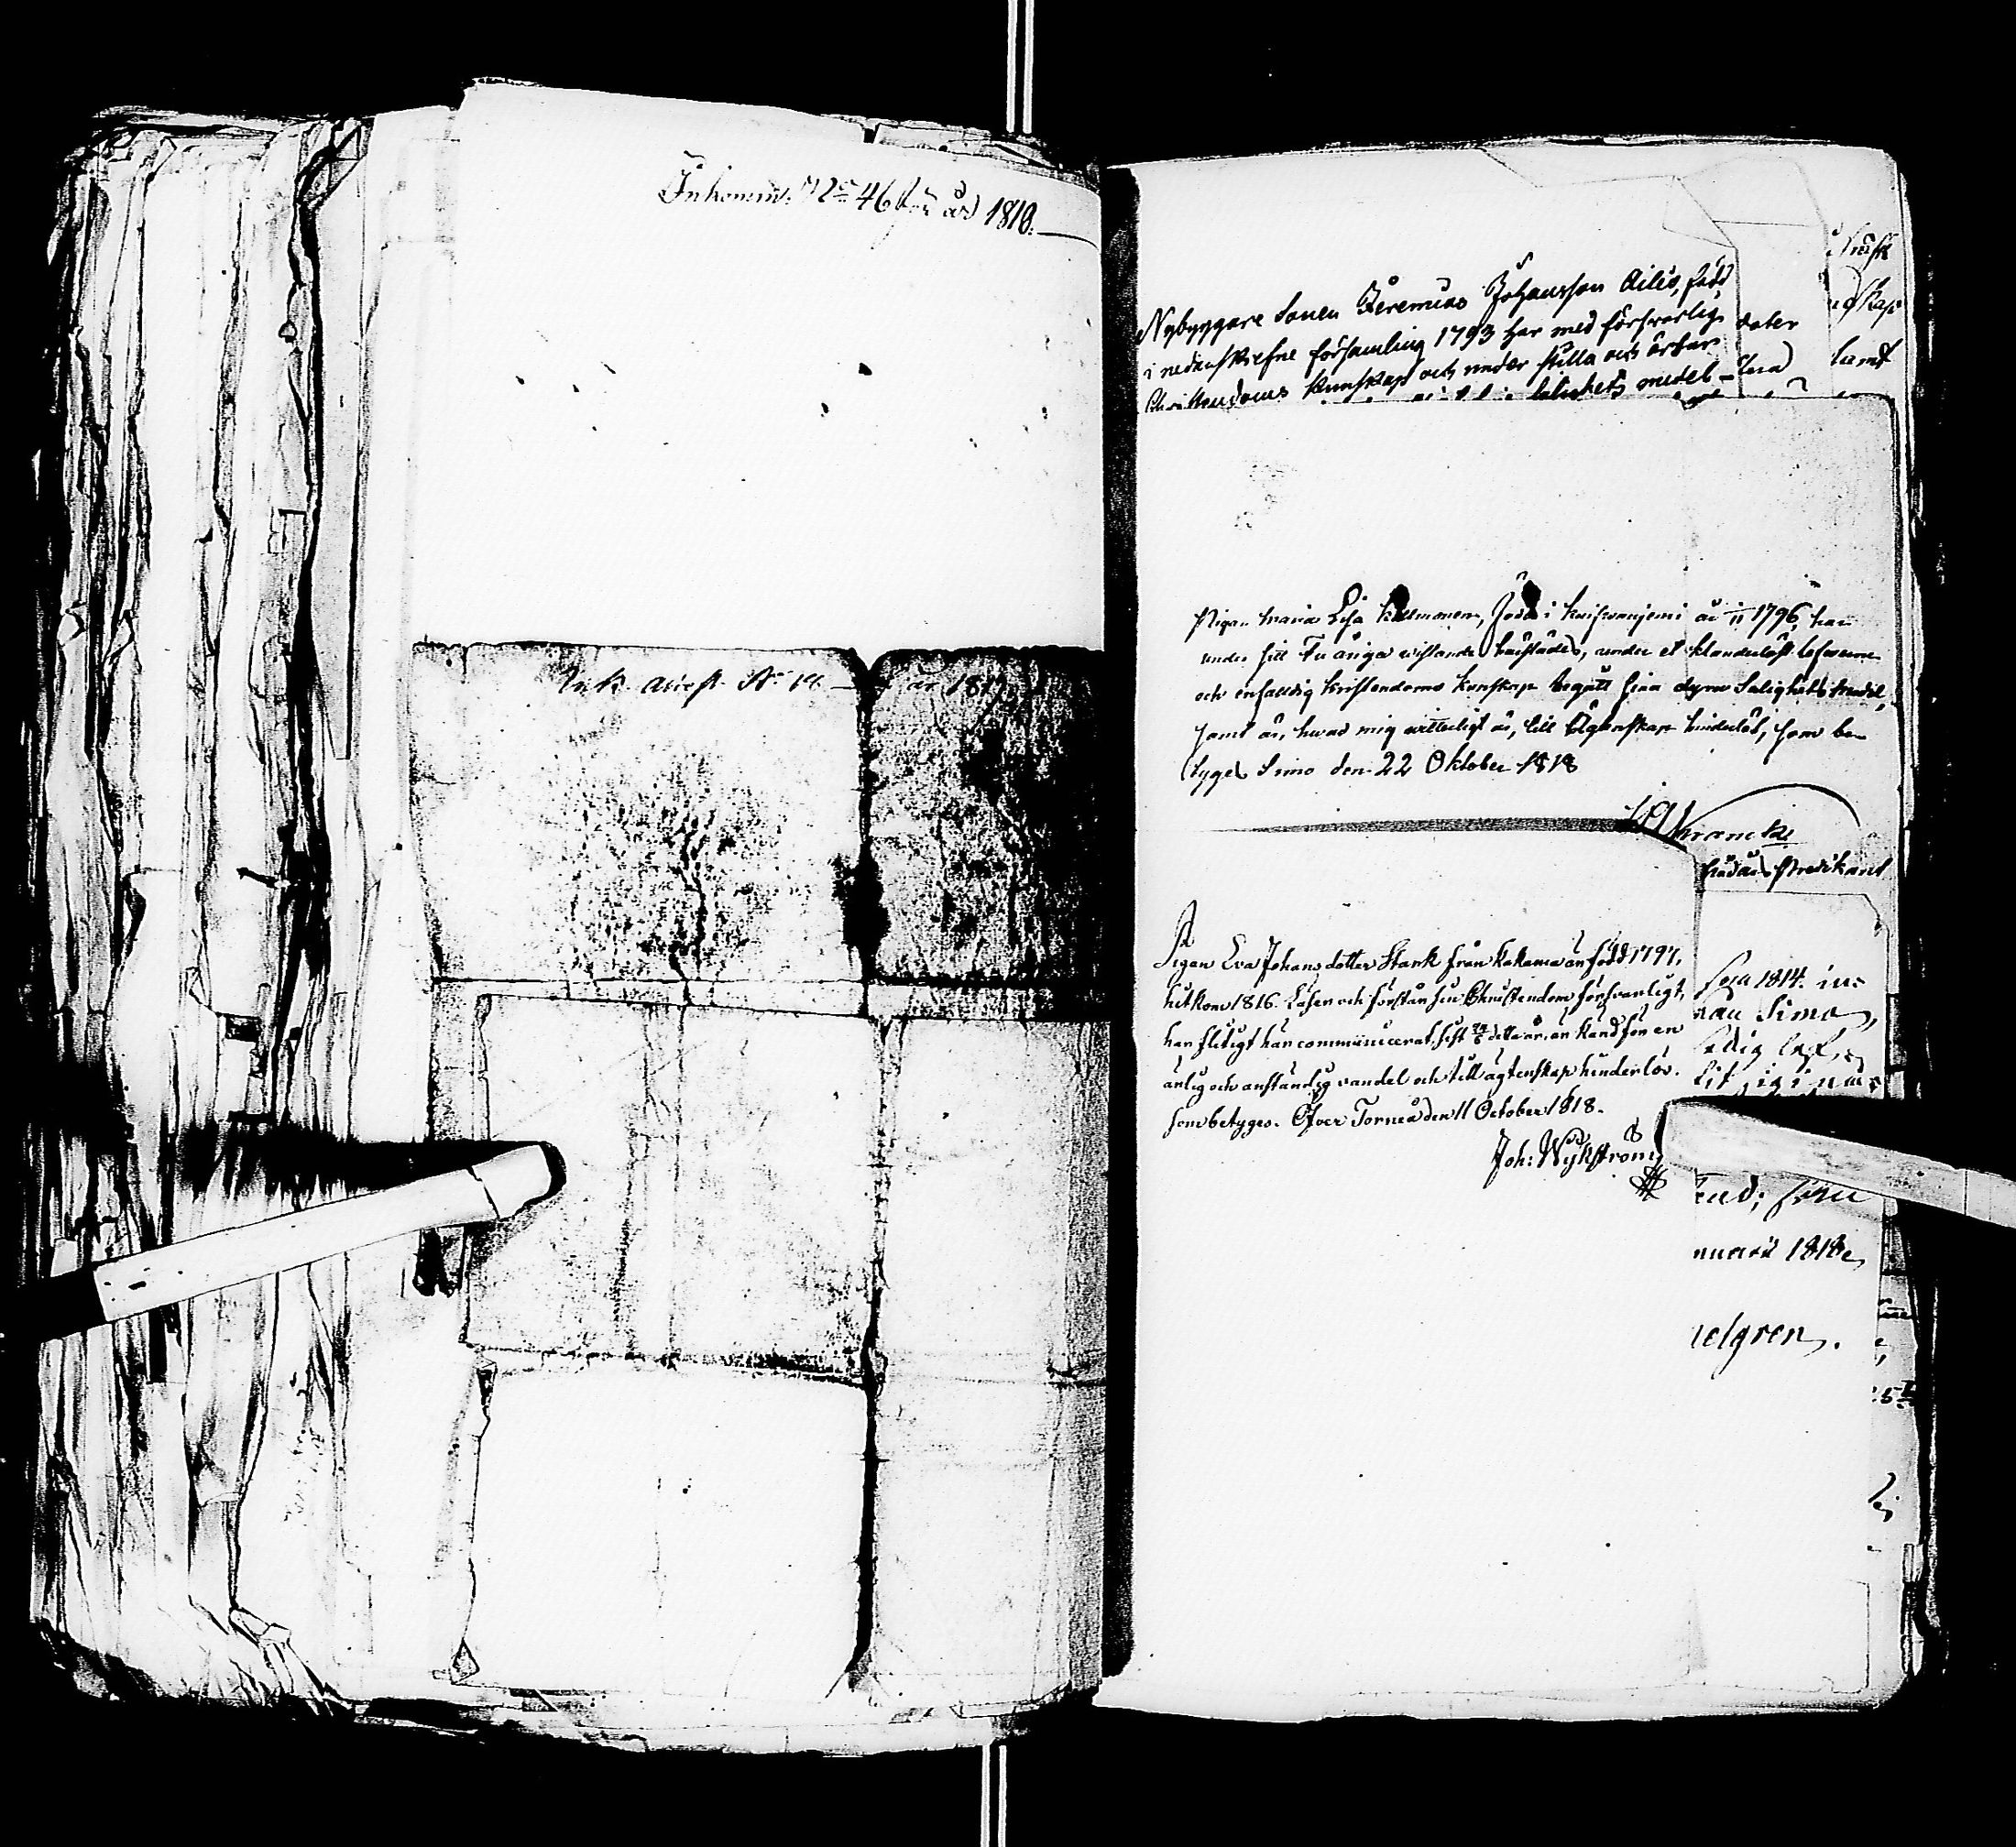 Inkomm. No 46 för år 1818.
Ink. attest. No 19 år 181
Nybyggare Sonen Jeremias Johansson Ailis, född
i nedanskrefne församling 1793 har med försvarlig
Christendoms kunskap och under stilla och ärbar
salighets medel
dater
samt
Pigan Maria Lisa född i år 1796, har
under sitt Tu åriga vistande härstädes, under et klanderlöst lefverne
och enfaldig kristendoms kunskap begått sina dyra Salighets medel,
samt är, hvad mig vitterligt är, till Ägtenskap hinderlös, som be-
tyges Simo den 22 Oktober 1818
Wranck
Predikant
Pigan Eva Johans dotter Stark från Kakama är född 1797,
hitkom 1816. Läser och förstår sin Christendom försvarligt,
har flitigt här communicerat, sist detta år, är känd för en
ärlig och anständig vandel och till ägtenskap hinderlös.
som betyges. Öfver Torneå den 11 October 1818.
Joh: Wykström
1814. in-
Simo,
nuarii 1818
elgren.